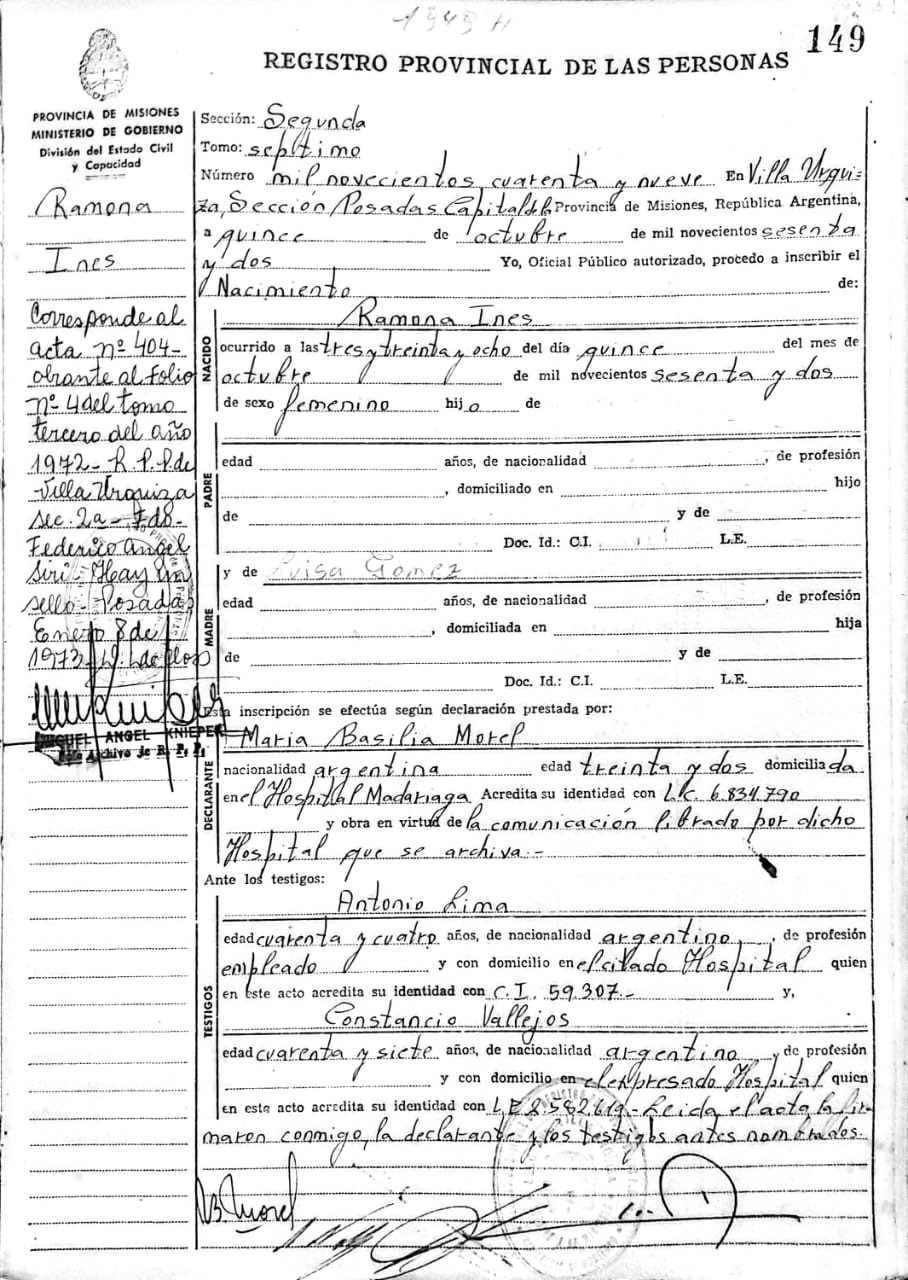 1949 H
149
REGISTRO PROVINCIAL DE LAS PERSONAS
PROVINCIA DE MISIONES
MINISTERIO DE GOBIERNO
División del Estado Civil
y Capacidad
Ramona
Ines
Corresponde al
acta nº 404-
obrante al folio
nº 4 del tomo
tercero del año
1972- R.P.P. de
Villa Urquiza
sec. 2a- Fdo-
Federico Angel
Siri- Hay un
sello- Posadas
Enero 8 de
1973-
MIGUEL ANGEL KNIEPER
Archivo de R. P. P.
Sección: Segunda
Tomo: septimo
Número mil novecientos cuarenta y nueve En Villa Urqui-
za, Sección Posadas Capital de la Provincia de Misiones, República Argentina,
a quince de octubre de mil novecientos sesenta
y dos Yo, Oficial Público autorizado, procedo a inscribir el
Nacimiento de:
NACIDO
Ramona Ines
ocurrido a las tres y treinta y ocho del día quince del mes de
octubre de mil novecientos sesenta y dos
de sexo femenino hijo de
PADRE
edad años, de nacionalidad , de profesión
, domiciliado en hijo
de y de
Doc. Id.: C.I. L.E.
MADRE
y de Luisa Gomez
edad años, de nacionalidad , de profesión
, domiciliada en hija
de y de
Doc. Id.: C.I. L.E.
Esta inscripción se efectúa según declaración prestada por:
DECLARANTE
Maria Basilia Morel
nacionalidad argentina edad treinta y dos domiciliada
en el Hospital Madariaga Acredita su identidad con L.C. 6.834.790
y obra en virtud de la comunicación librado por dicho
Hospital que se archiva.-
Ante los testigos:
TESTIGOS
Antonio Lima
edad cuarenta y cuatro años, de nacionalidad argentino, de profesión
empleado y con domicilio en el citado Hospital quien
en este acto acredita su identidad con C.I. 59.307.- y,
Constancio Vallejos
edad cuarenta y siete años, de nacionalidad argentino, de profesión
y con domicilio en el expresado Hospital quien
en este acto acredita su identidad con L.E. 2.582.619- Leida el acta la fir-
maron conmigo, la declarante y los testigos antes nombrados.
B. Morel